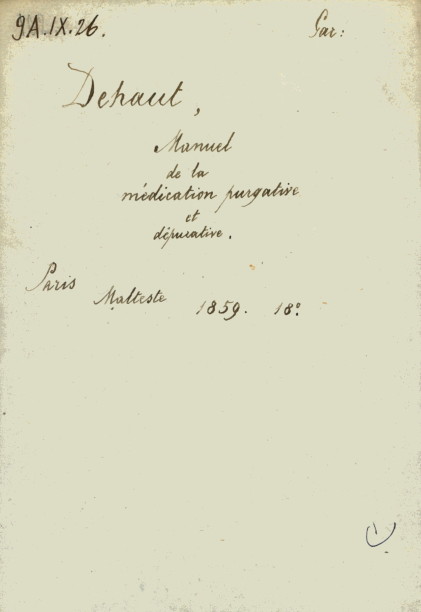 9A.IX.26.
Gar:
Dehaut,
Manuel
de la
médication purgative
et
dépurative.
Paris
Malteste 1859. 18º.